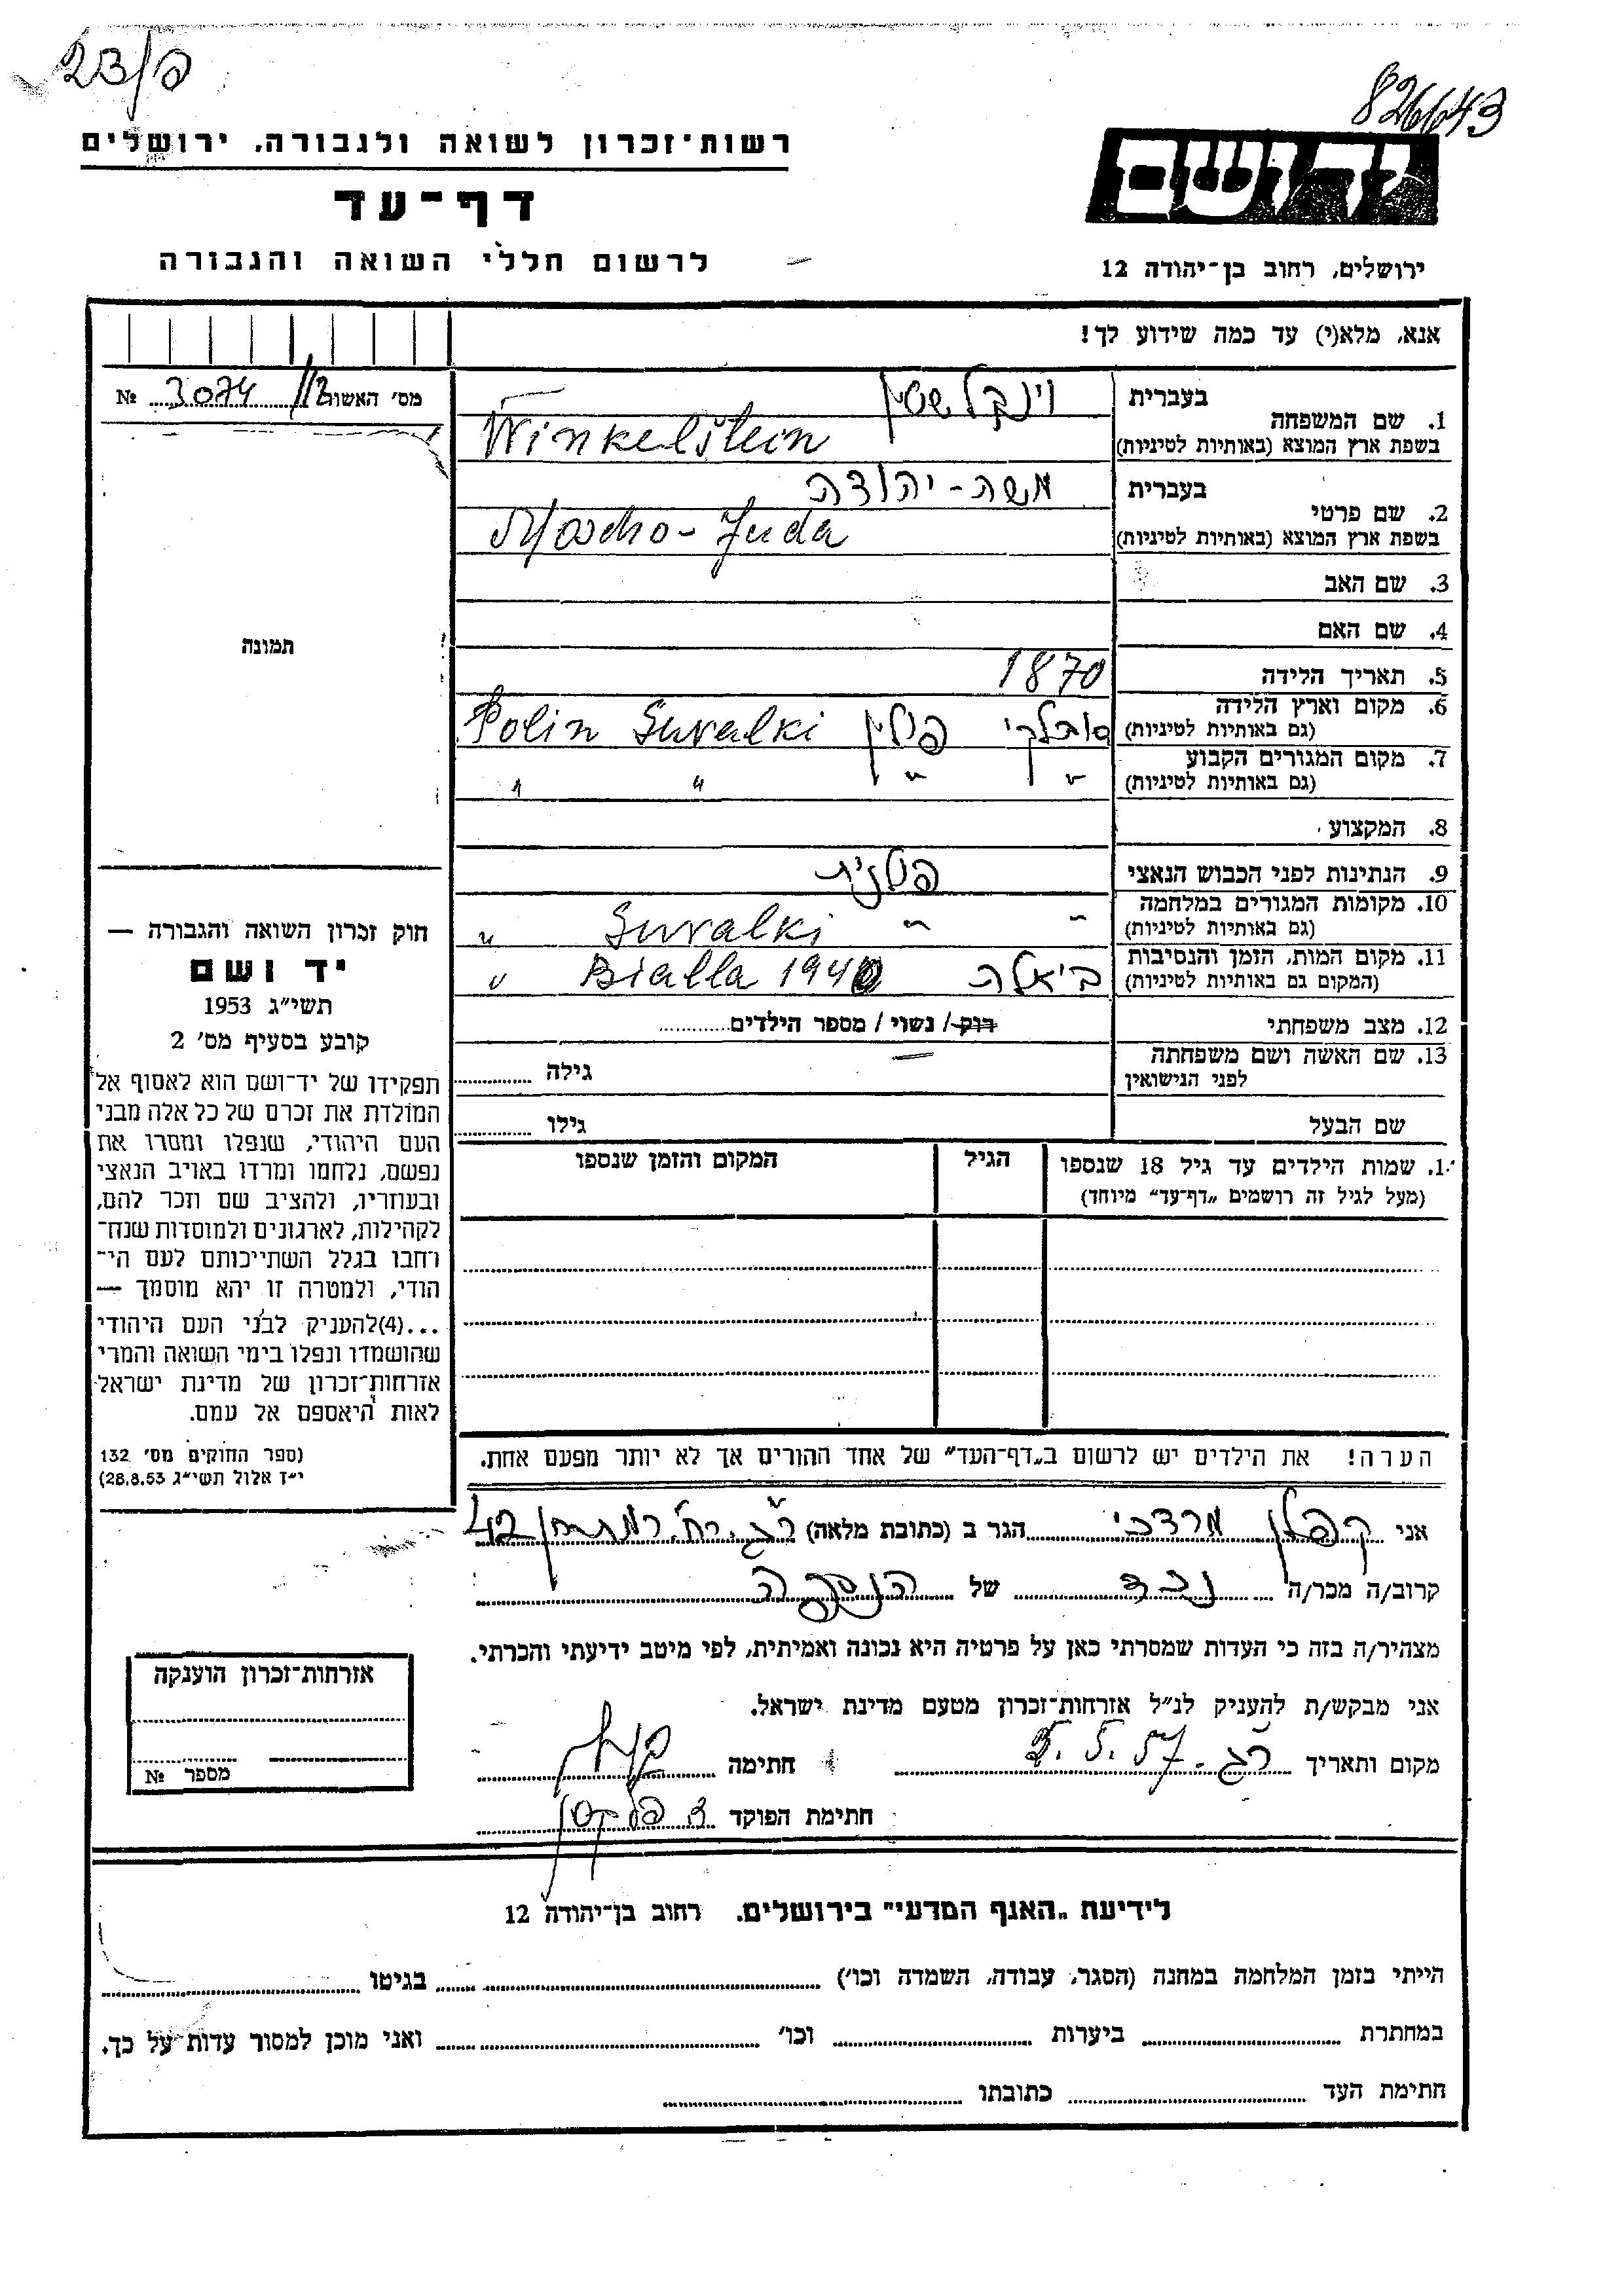 23/פ
826643
רשות־זכרון לשואה ולגבורה, ירושלים
דף־עד
לרשום חללי השואה והגבורה
יד ושם
ירושלים, רחוב בן־יהודה 12
אנא, מלא(י) עד כמה שידוע לך!
מס׳ האשור 3074 №
1. שם המשפחה
בעברית וינקלשטין
בשפת ארץ המוצא (באותיות לטיניות) Winkelstein
2. שם פרטי
בעברית משה-יהודה
בשפת ארץ המוצא (באותיות לטיניות) Moscho-Juda
3. שם האב
4. שם האם
5. תאריך הלידה 1870
6. מקום וארץ הלידה סובלקי פולין Polin Suvalki
(גם באותיות לטיניות)
7. מקום המגורים הקבוע " " " "
(גם באותיות לטיניות)
8. המקצוע
9. הנתינות לפני הכבוש הנאצי פולנית
10. מקומות המגורים במלחמה " " Suvalki "
(גם באותיות לטיניות)
11. מקום המות, הזמן והנסיבות ביאלה Bialla 1940 "
(המקום גם באותיות לטיניות)
12. מצב משפחתי רוק / נשוי / מספר הילדים
13. שם האשה ושם משפחתה
לפני הנישואין
גילה
שם הבעל גילו
1. שמות הילדים עד גיל 18 שנספו הגיל המקום והזמן שנספו
(מעל לגיל זה רושמים „דף־עד״ מיוחד)
תמונה
חוק זכרון השואה והגבורה —
יד ושם
תשי״ג 1953
קובע בסעיף מס׳ 2
תפקידו של יד־ושם הוא לאסוף אל
המולדת את זכרם של כל אלה מבני
העם היהודי, שנפלו ומסרו את
נפשם, נלחמו ומרדו באויב הנאצי
ובעוזריו, ולהציב שם וזכר להם,
לקהילות, לארגונים ולמוסדות שנח־
רבו בגלל השתייכותם לעם הי־
הודי, ולמטרה זו יהא מוסמך —
...(4)להעניק לבני העם היהודי
שהושמדו ונפלו בימי השואה והמרי
אזרחות־זכרון של מדינת ישראל
לאות היאספם אל עמם.
(ספר החוקים מס׳ 132
י״ז אלול תשי״ג 28.8.53)
הערה! את הילדים יש לרשום ב„דף־העד״ של אחד ההורים אך לא יותר מפעם אחת.
אני קפלן מרדכי הגר ב (כתובת מלאה) ר״ג. רח׳ 42
קרוב/ה מכר/ה נכד של הנספה
מצהיר/ה בזה כי העדות שמסרתי כאן על פרטיה היא נכונה ואמיתית, לפי מיטב ידיעתי והכרתי.
אני מבקש/ת להעניק לנ״ל אזרחות־זכרון מטעם מדינת ישראל.
מקום ותאריך רג. 5.57 חתימה
חתימת הפוקד
אזרחות־זכרון הוענקה
מספר №
לידיעת „האגף המדעי״ בירושלים, רחוב בן־יהודה 12
הייתי בזמן המלחמה במחנה (הסגר, עבודה, השמדה וכו׳) בגיטו
במחתרת ביערות וכו׳ ואני מוכן למסור עדות על כך.
חתימת העד כתובתו